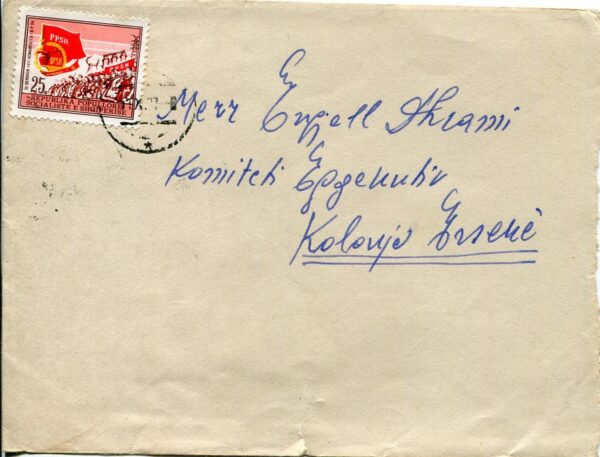 PPSH
25
REPUBLIKA POPULLORE
SOCIALISTE E SHQIPERISE
Merr Engjell Dhrami
Komiteti Egzekutiv
Kolonjë Ersekë